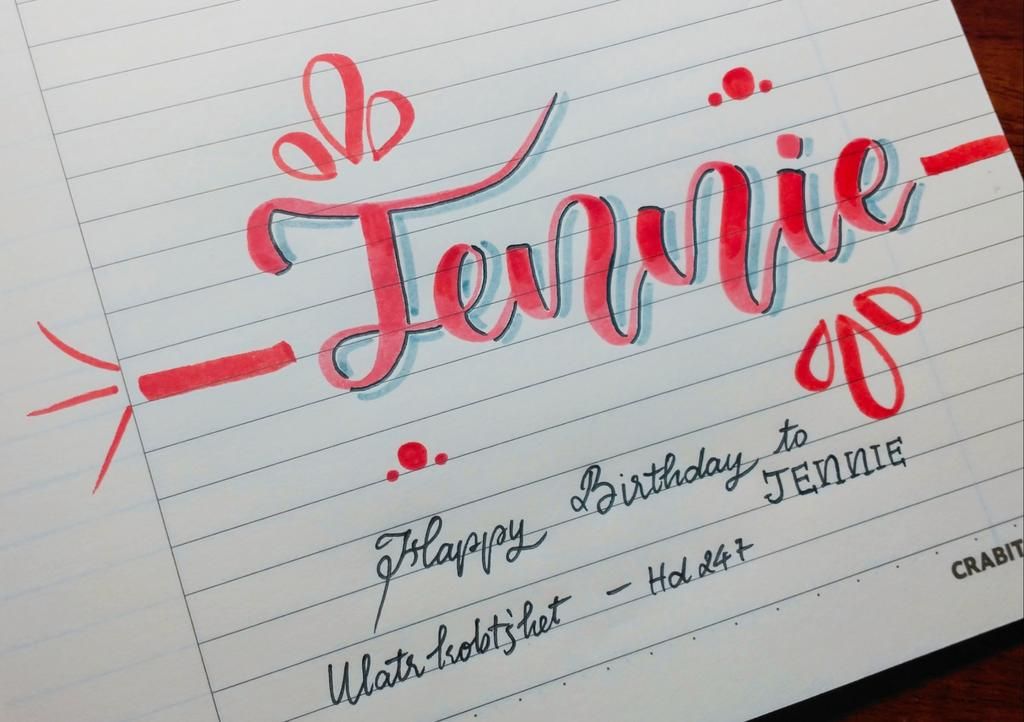 Jennie
Happy Birthday to
JENNIE
– Hd 247
CRABIT